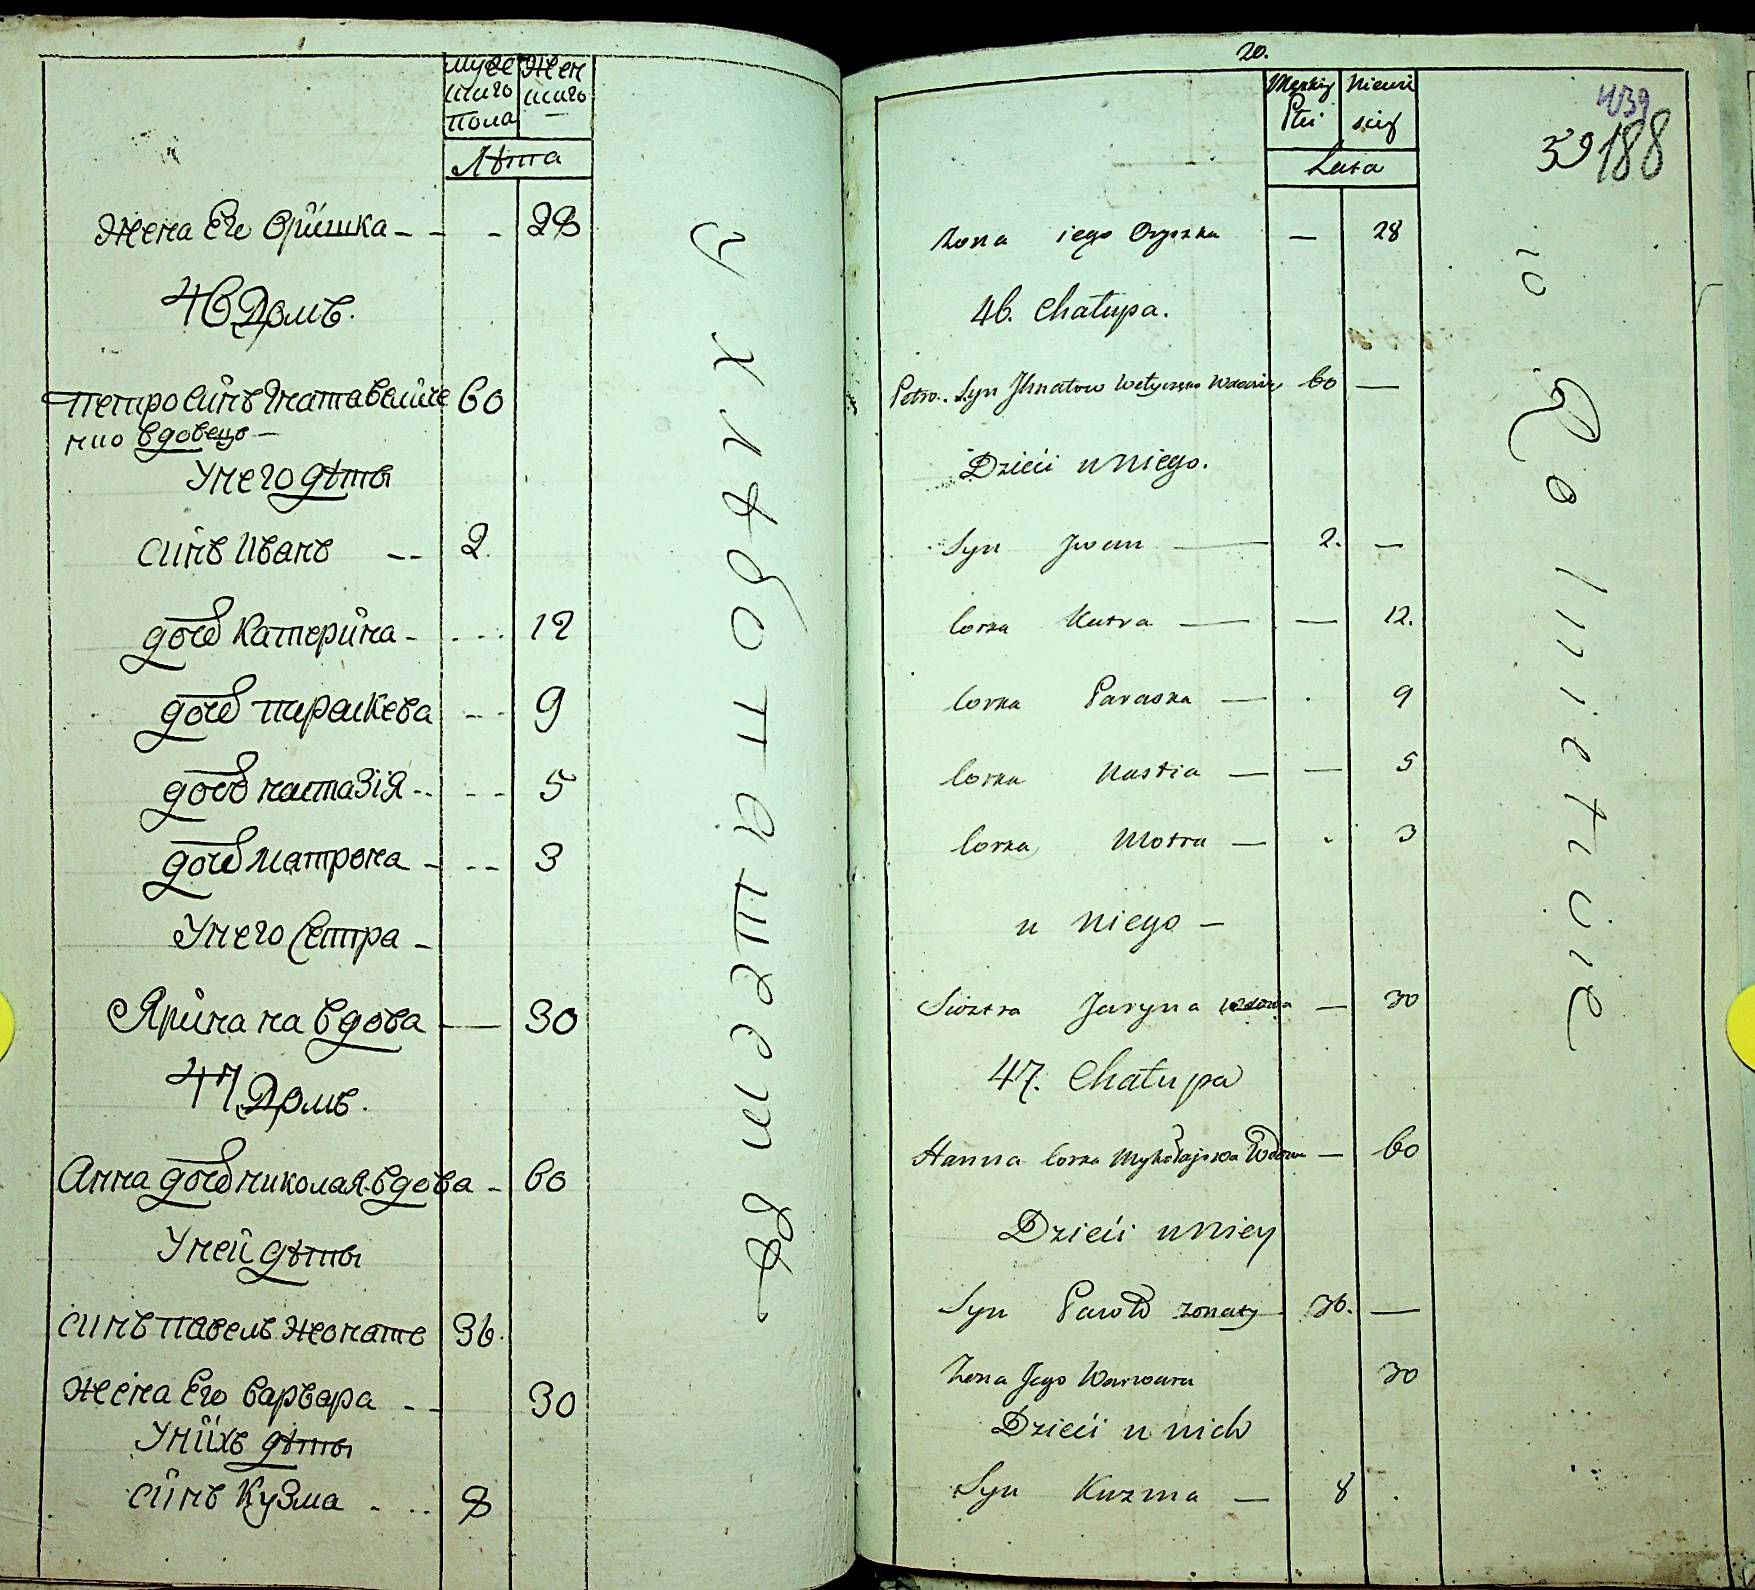 муже
ского
пола
жен
ского
Лѣта
жена Его Оришка - - - 28
46 Домъ.
Петро синъ Игната величе 60
нко вдовецъ -
Унего дѣты
синъ Иванъ -- 2
дочь Катерина - 12
дочь параскева -- 9
дочь настазія -- 5
дочь матрона --- 3
Унего Сестра -
Ярина на вдова — 30
47 Домъ.
Анна дочь николая вдова - 60
Уней дѣты
синъ павелъ жонатъ 36
жена Его варвара -- 30
Униихъ дѣты
синъ Кузма - 8
20.
Męzkiy
Płci
Niewie
sciey
Lata
439
39 188
Zona iego Oryszka — 28
46. Chałupa.
Petro Syn Ihnatow Wełyczko Wdowiec 60 —
Dzieći u Niego.
Syn Jwan — 2. —
Corka Katra — — 12.
Corka Paraska — 9
Corka Nastia — — 5
Corka Motra — 3
u Niego —
Siostra Jaryna Wdowa — 30
47. Chałupa
Hanna Corka Mykołajowa Wdowa — 60
Dzieći u Niey
Syn Pawło zonaty 36. —
Zona Jego Warwara 30
Dzieći u nich
Syn Kuzma — 8